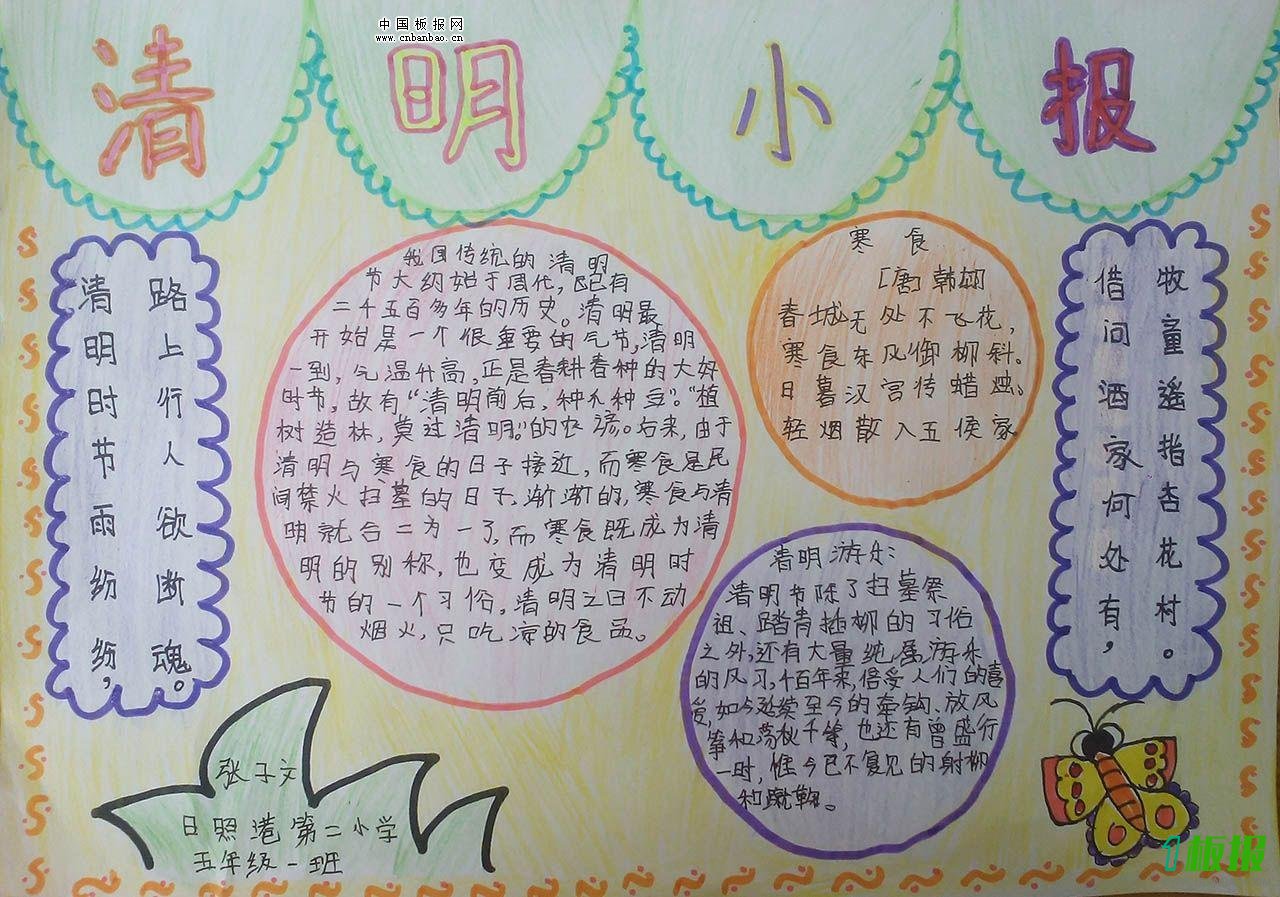 中国板报网
www.cnbanbao.cn
清明小报
清明时节雨纷纷，
路上行人欲断魂。
我国传统的清明
节大约始于周代，已有
二千五百多年的历史。清明最
开始是一个很重要的气节，清明
一到，气温升高，正是春耕春种的大好
时节，故有“清明前后，种瓜种豆”。“植
树造林，莫过清明。”的农谚。后来，由于
清明与寒食的日子接近，而寒食是民
间禁火扫墓的日子，渐渐的，寒食与清
明就合二为一了，而寒食既成为清
明的别称，也变成为清明时
节的一个习俗，清明之日不动
烟火，只吃凉的食品。
寒食
［唐］韩翃
春城无处不飞花，
寒食东风御柳斜。
日暮汉宫传蜡烛。
轻烟散入五侯家
清明游乐：
清明节除了扫墓祭
祖、踏青插柳的习俗
之外，还有大量纯属游乐
的风习，千百年来，倍受人们的喜
爱，如今延续至今的牵钩、放风
筝和荡秋千等，也还有曾盛行
一时，惟今已不复见的射柳
和蹴鞠。
借问酒家何处有，
牧童遥指杏花村。
张子文
日照港第二小学
五年级一班
1板报